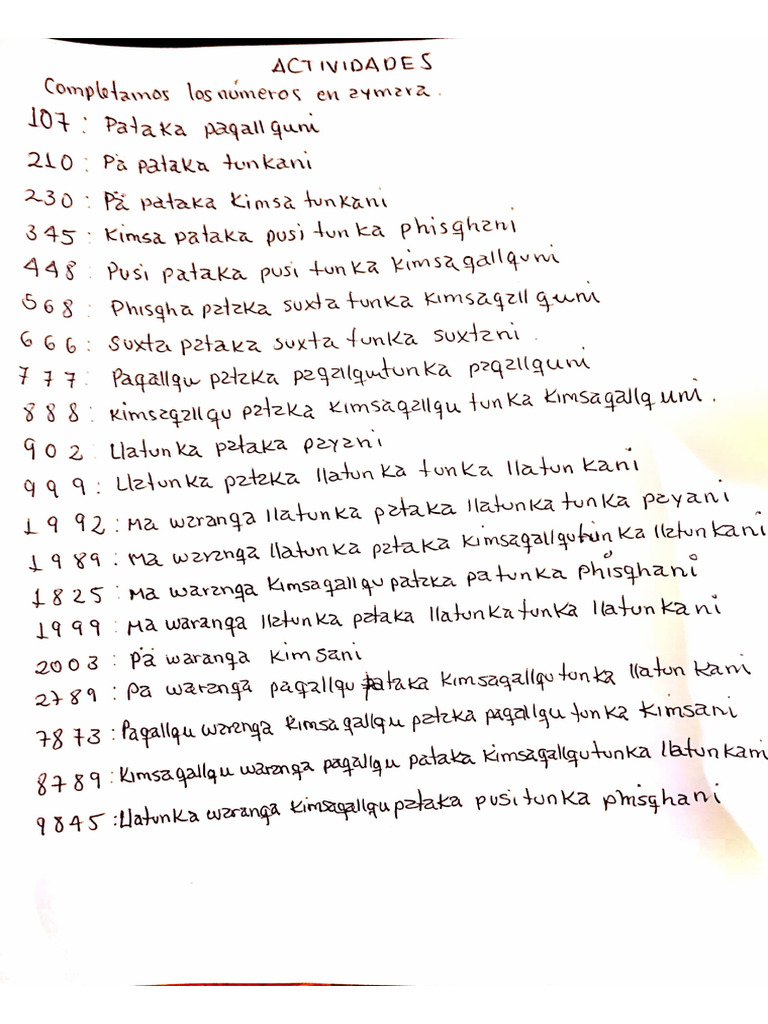 ACTIVIDADES
Completamos los números en aymara.
107: Pataka paqallquni
210: Pä pataka tunkani
230: Pä pataka kimsa tunkani
345: Kimsa pataka pusi tunka phisqhani
448: Pusi pataka pusi tunka kimsaqallquni
568: Phisqha pataka suxta tunka kimsaqallquni
666: Suxta pataka suxta tunka suxtani.
777: Paqallqu pataka paqallqutunka paqallquni
888: Kimsaqallqu pataka kimsaqallqu tunka kimsaqallquni.
902: Llatunka pataka payani
999: Llatunka pataka llatunka tunka llatunkani
1992: Ma waranqa llatunka pataka llatunka tunka payani
1989: Ma waranqa llatunka pataka kimsaqallqutunka llatunkani
1825: Ma waranqa kimsaqallqu pataka patunka phisqhani
1999: Ma waranqa llatunka pataka llatunkatunka llatunkani
2003: pä waranqa kimsani
2789: Pa waranqa paqallqu pataka kimsaqallqutunka llatunkani
7873: Paqallqu waranqa kimsaqallqu pataka paqallqu tunka kimsani
8789: Kimsaqallqu waranqa paqallqu pataka kimsaqallqutunka llatunkani
9845: Llatunka waranqa kimsaqallqu pataka pusitunka phisqhani